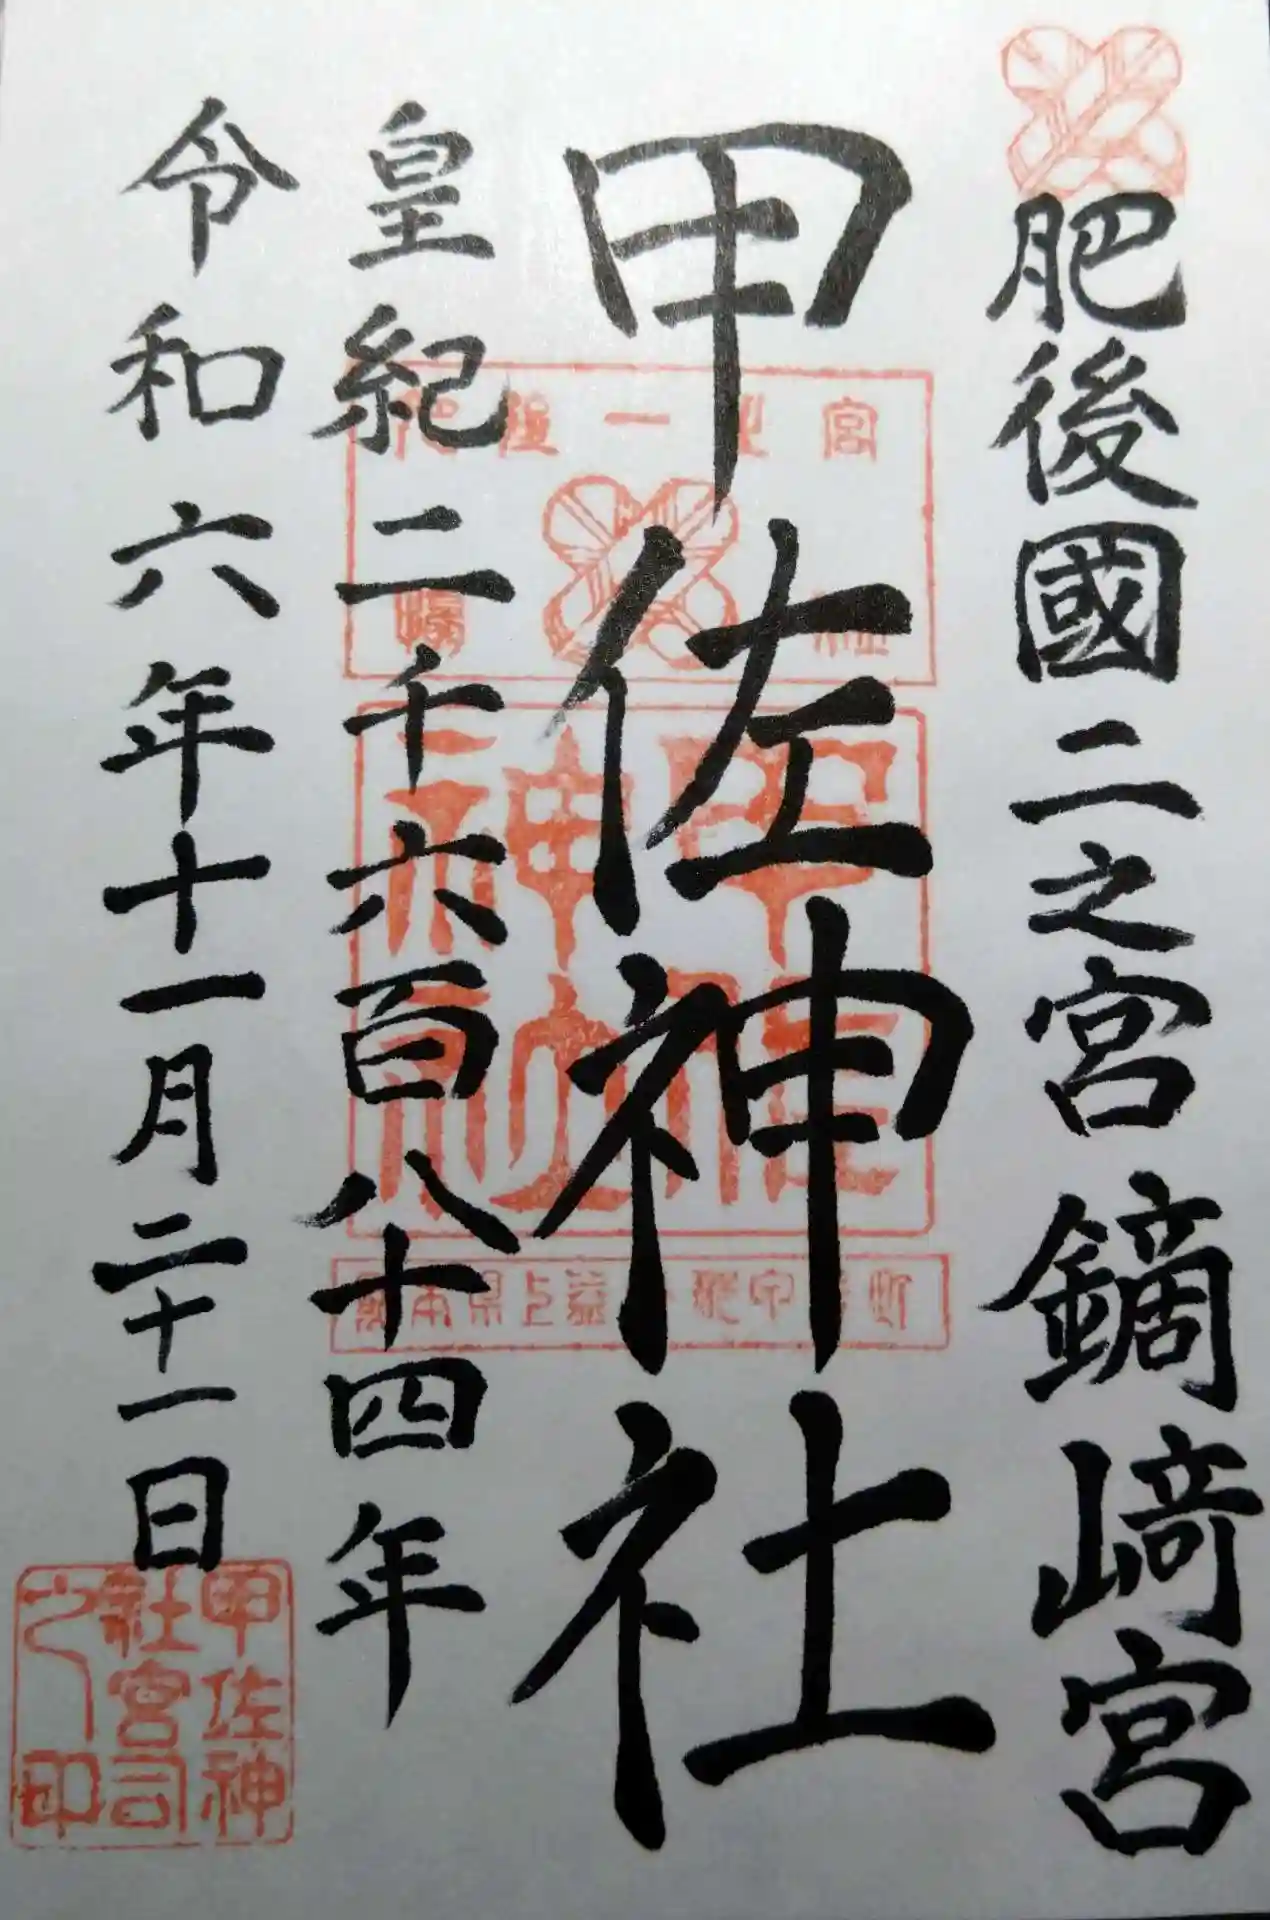 肥後國二之宮 鏑崎宮
甲佐神社
皇紀二千六百八十四年
令和六年十一月二十一日
甲佐神
社宮司
之印